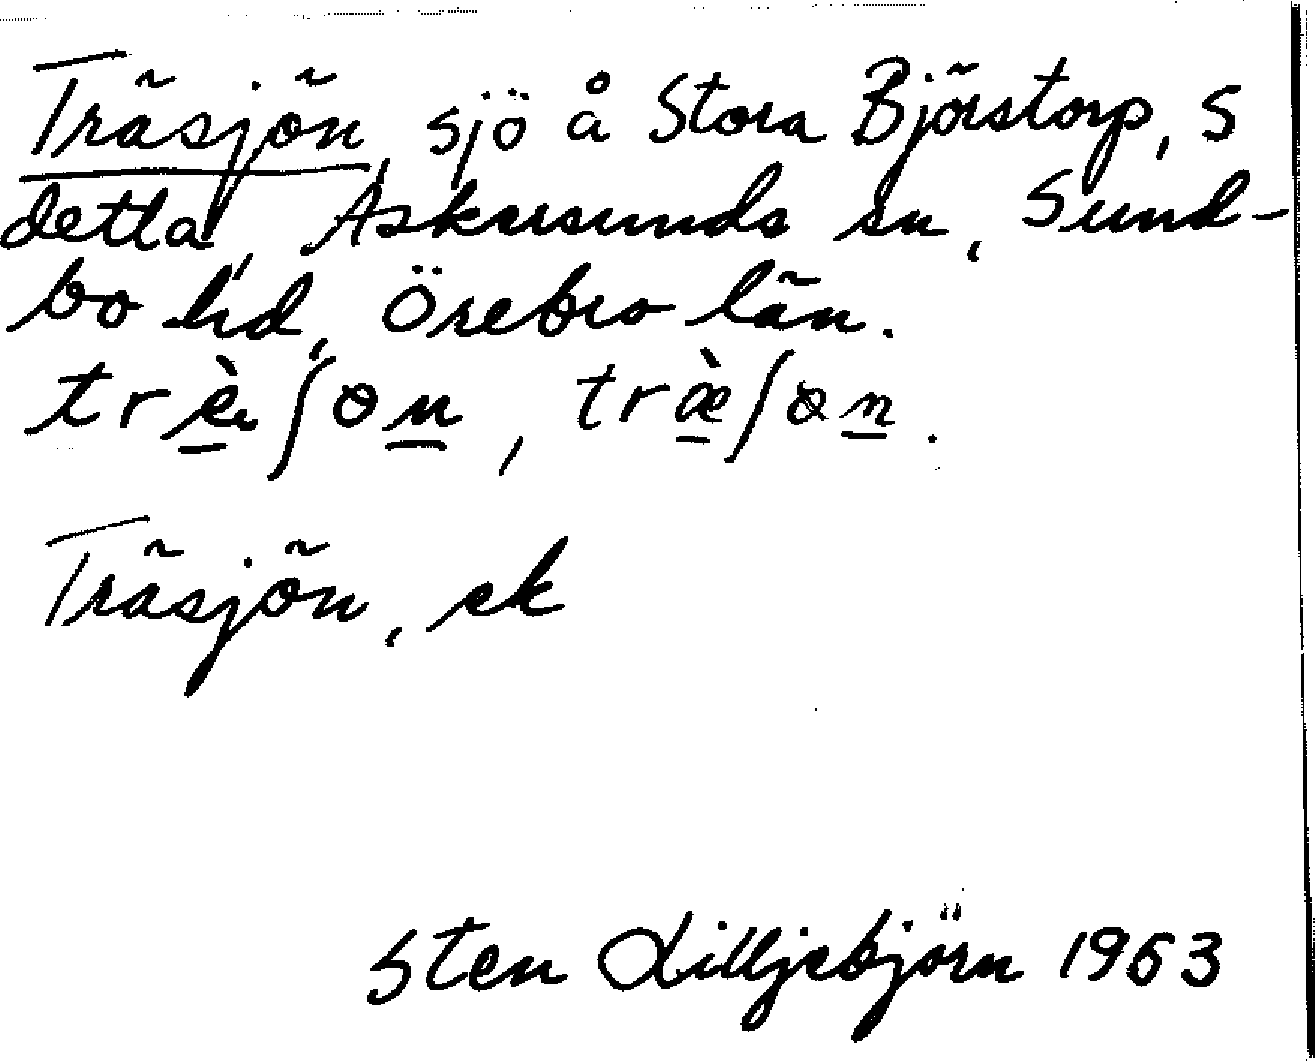 Träsjön, sjö å Stora Björstorp, S
detta, Askersunds sn, Sund-
bo hd, Örebro län.
träsjön, ek
Sten Lilljebjörn 1963